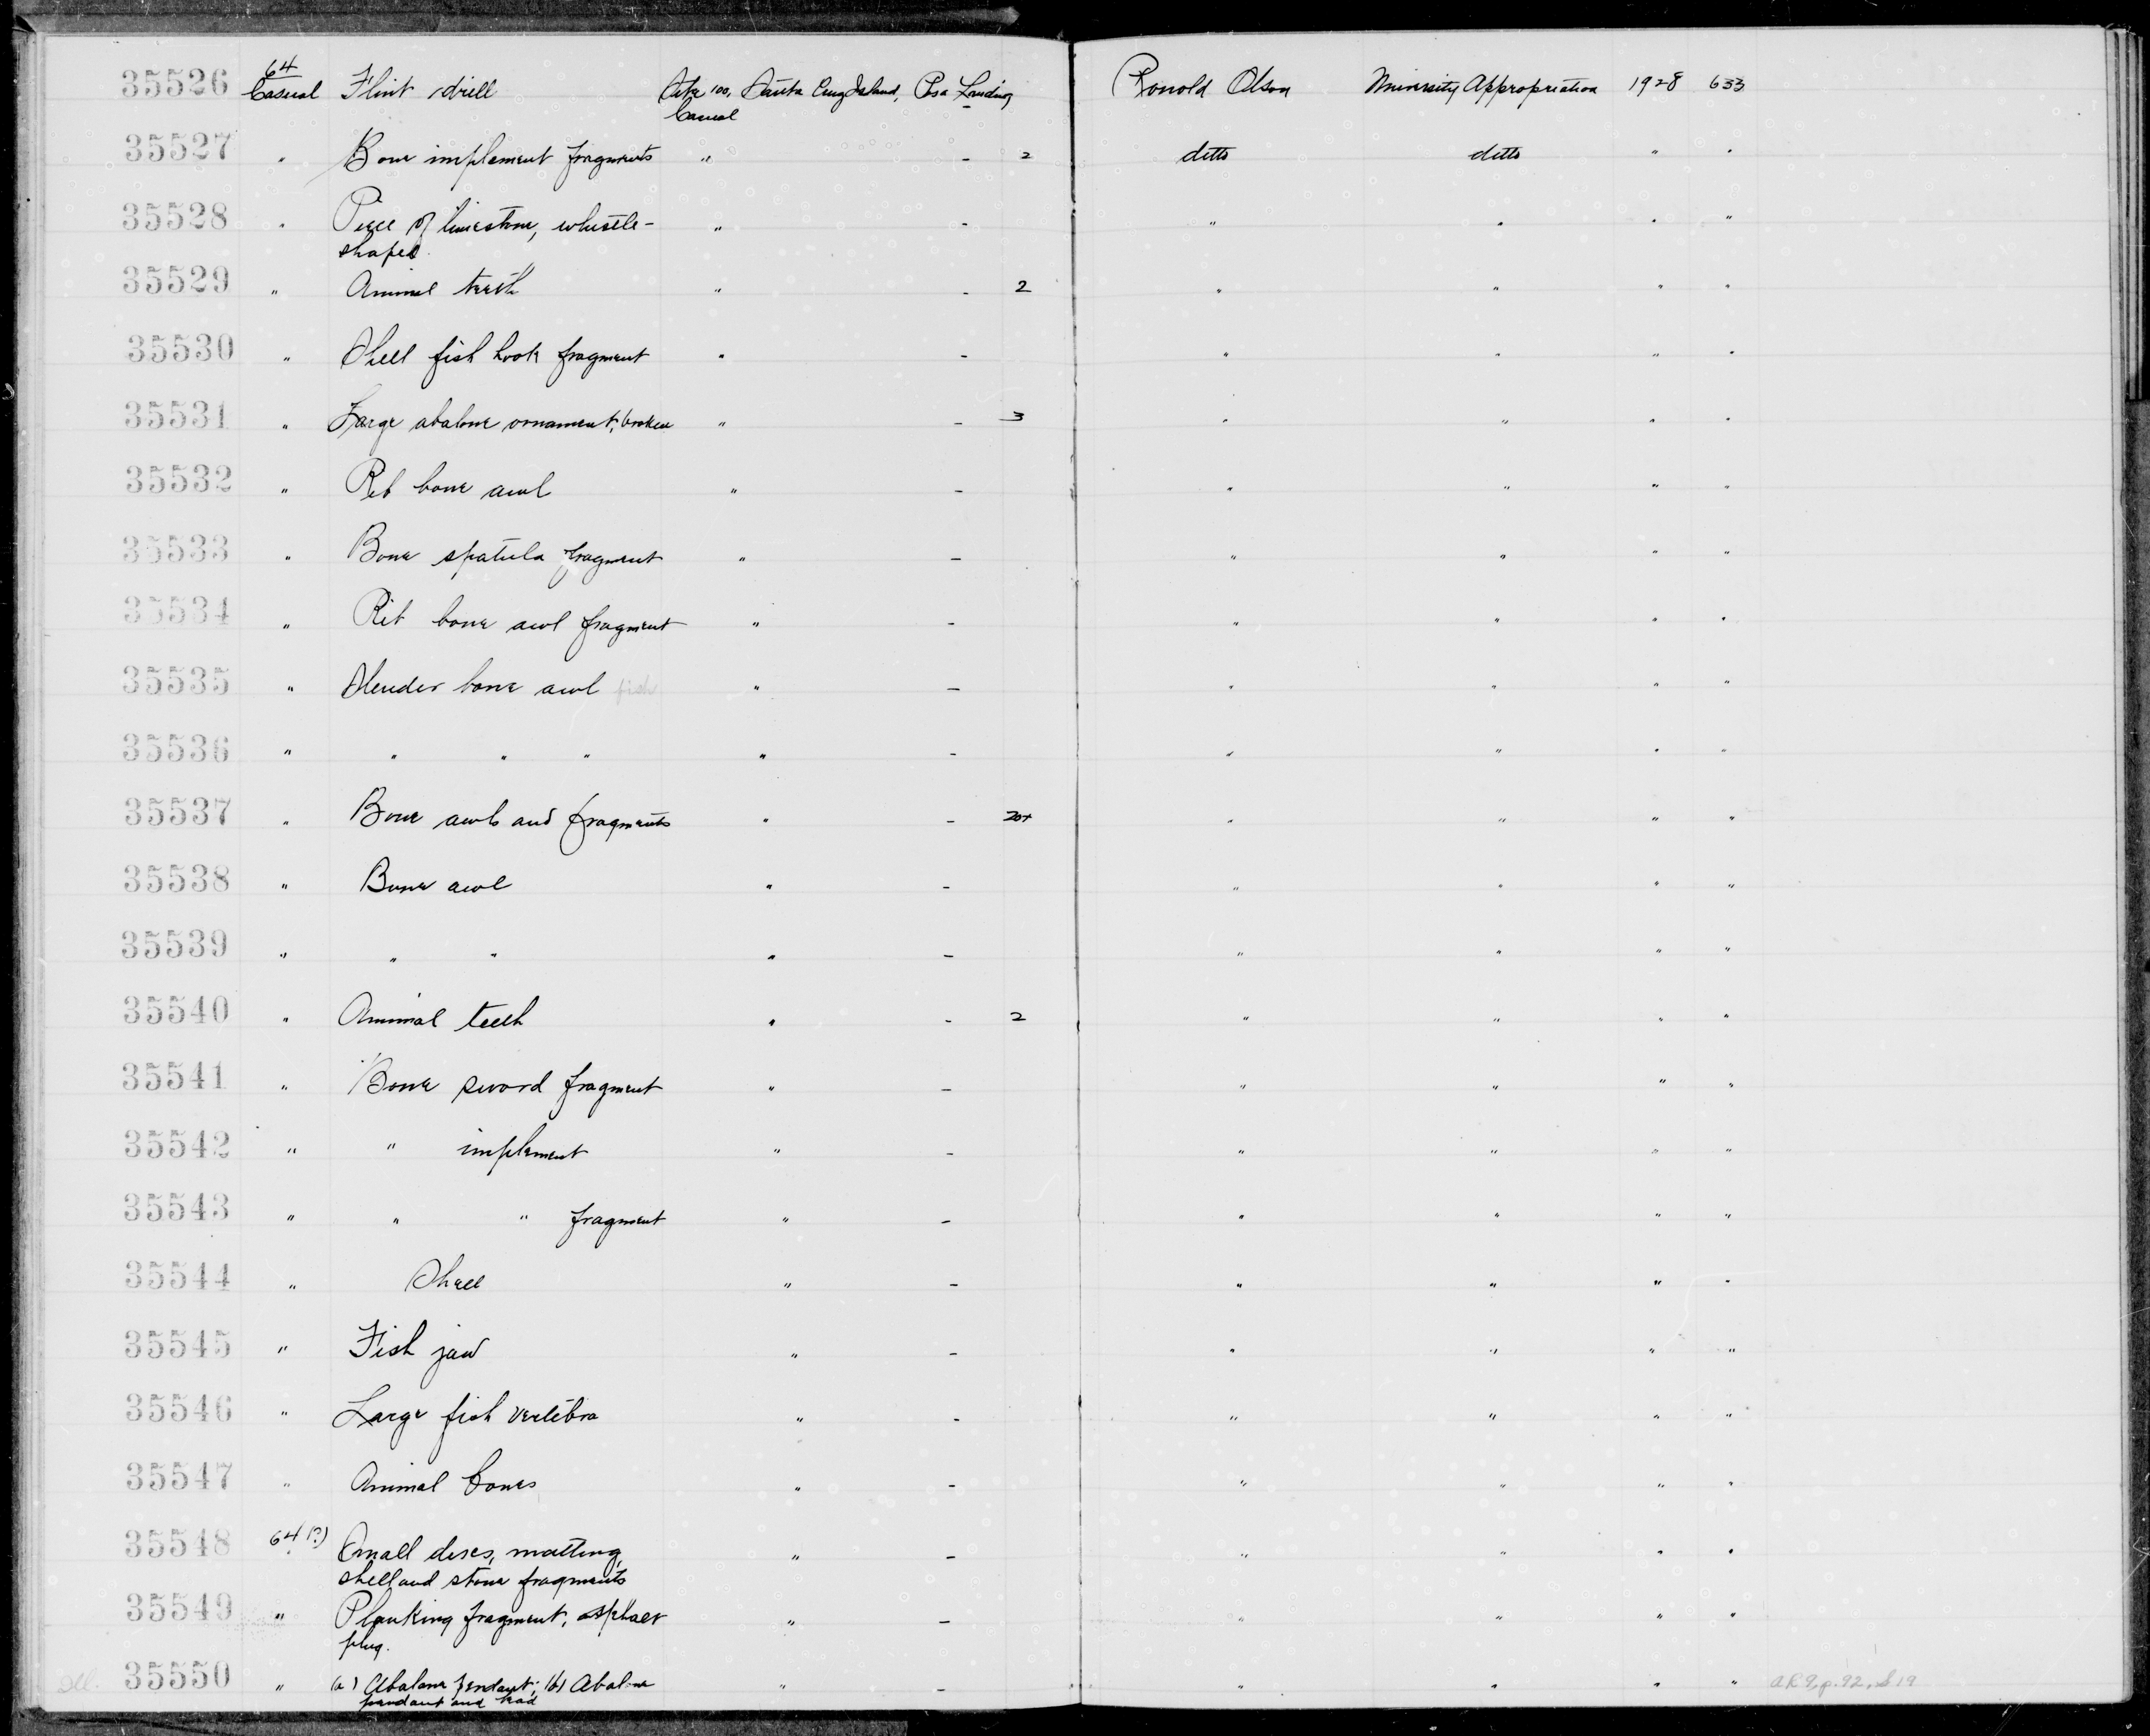 35526 64 Casual Flint drill Site 100, Santa Cruz Island, Posa Landing Ronald Olson University Appropriation 1928 633
Casual
35527 " Bone implement fragments " - 2 ditto ditto " "
35528 " Piece of limestone, whistle- " - " " " "
shaped.
35529 " Animal teeth " - 2 " " " "
35530 " Shell fish hook fragment " - " " " "
35531 " Large abalone ornament, broken " - 3 " " " "
35532 " Rib bone awl " - " " " "
35533 " Bone spatula fragment " - " " " "
35534 " Rib bone awl fragment " - " " " "
35535 " Slender bone awl fish " - " " " "
35536 " " " " " - " " " "
35537 " Bone awls and fragments " - 20+ " " " "
35538 " Bone awl " - " " " "
35539 " " " " - " " " "
35540 " Animal teeth " - 2 " " " "
35541 " Bone sword fragment " - " " " "
35542 " " implement " - " " " "
35543 " " " fragment " - " " " "
35544 " Shell " - " " " "
35545 " Fish jaw " - " " " "
35546 " Large fish vertebra " - " " " "
35547 " Animal bones " - " " " "
35548 64(?) Small discs, matting, " - " " " "
shell and stone fragments
35549 " Planking fragment, asphalt " - " " " "
plug.
Ill. 35550 " (a) Abalone pendant; (b) Abalone " - " " " " AR 9, p. 92,
pendant and bead